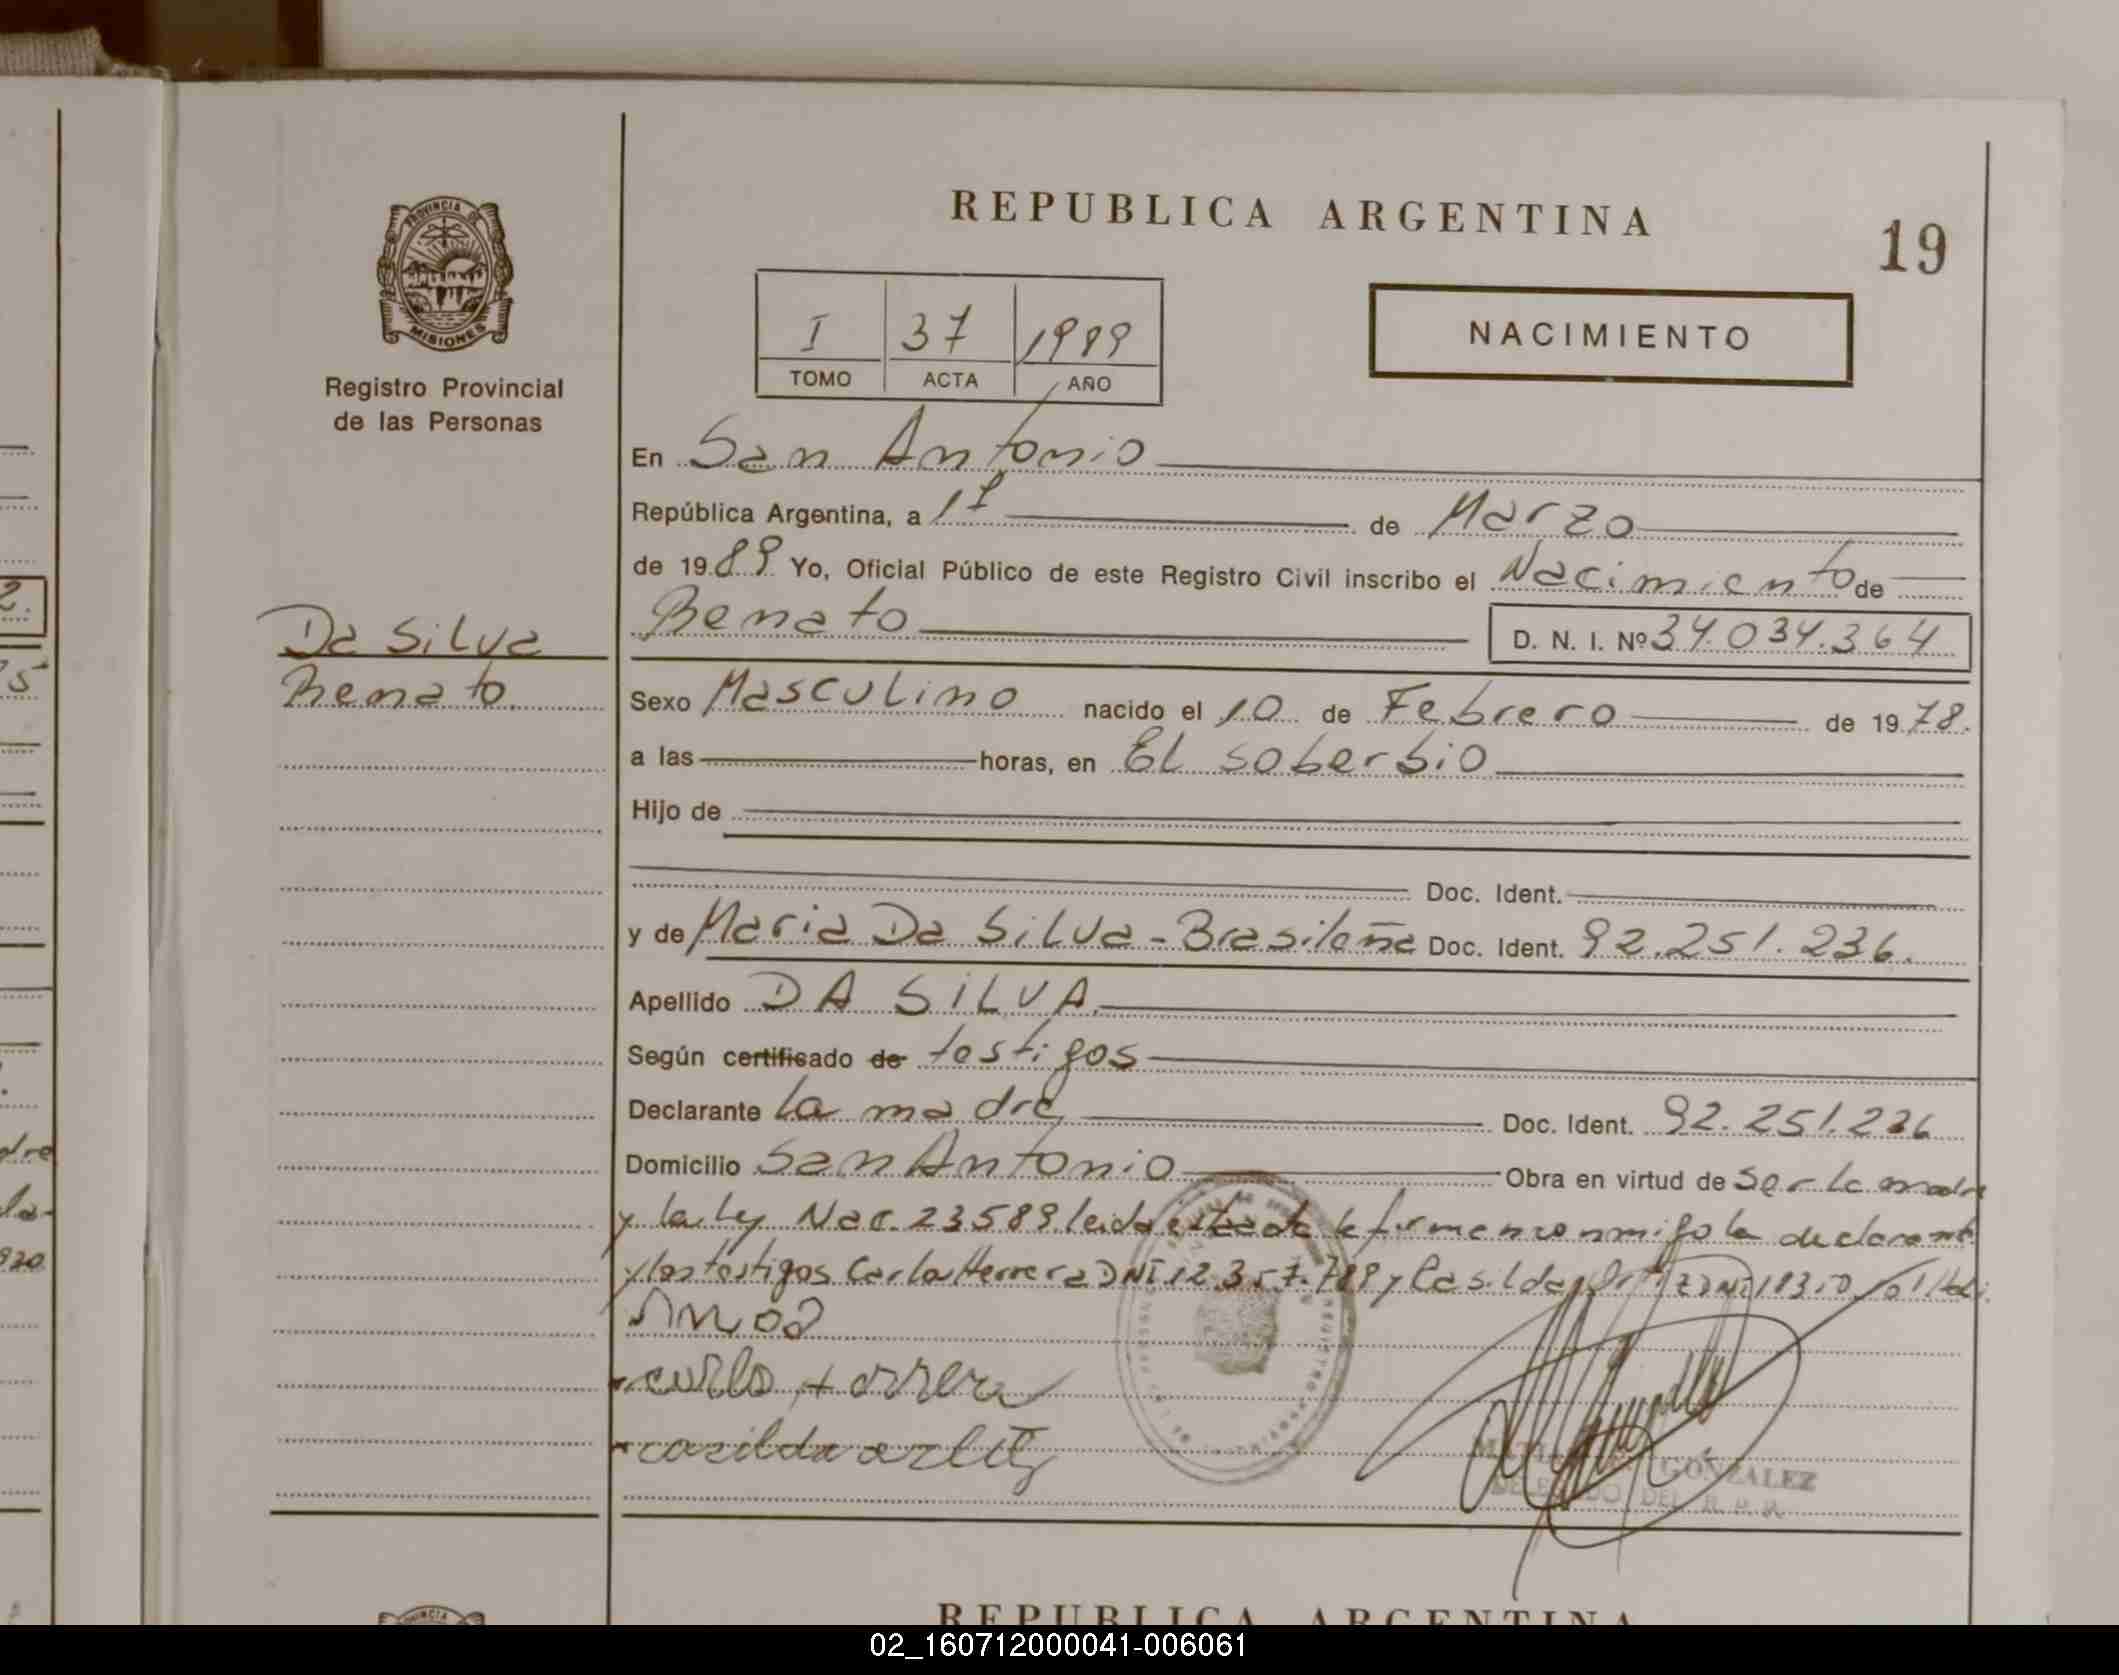 REPUBLICA ARGENTINA
19
PROVINCIA DE
MISIONES
Registro Provincial
de las Personas
I 37 1989
TOMO ACTA AÑO
NACIMIENTO
En San Antonio
República Argentina, a 17 de Marzo
de 1989 Yo, Oficial Público de este Registro Civil inscribo el Nacimiento de
Da Silva
Renato
Renato D. N. I. Nº 34.034.364
Sexo Masculino nacido el 10 de Febrero de 1978.
a las horas, en El soberbio
Hijo de
Doc. Ident.
y de Maria Da Silva - Brasileña Doc. Ident. 92.251.236.
Apellido DA SILVA.
Según certificado de testigos
Declarante La madre Doc. Ident. 92.251.236
Domicilio San Antonio Obra en virtud de ser la madre
y la ley Nac. 23589 leida el acta la firman conmigo la declarante
y los testigos Carlos Herrera DNI 12.357.789 y Casilda
carlo + errera
casilda
GONZALEZ
DELEGADO DEL R. P. P.
REPUBLICA ARGENTINA
02_160712000041-006061